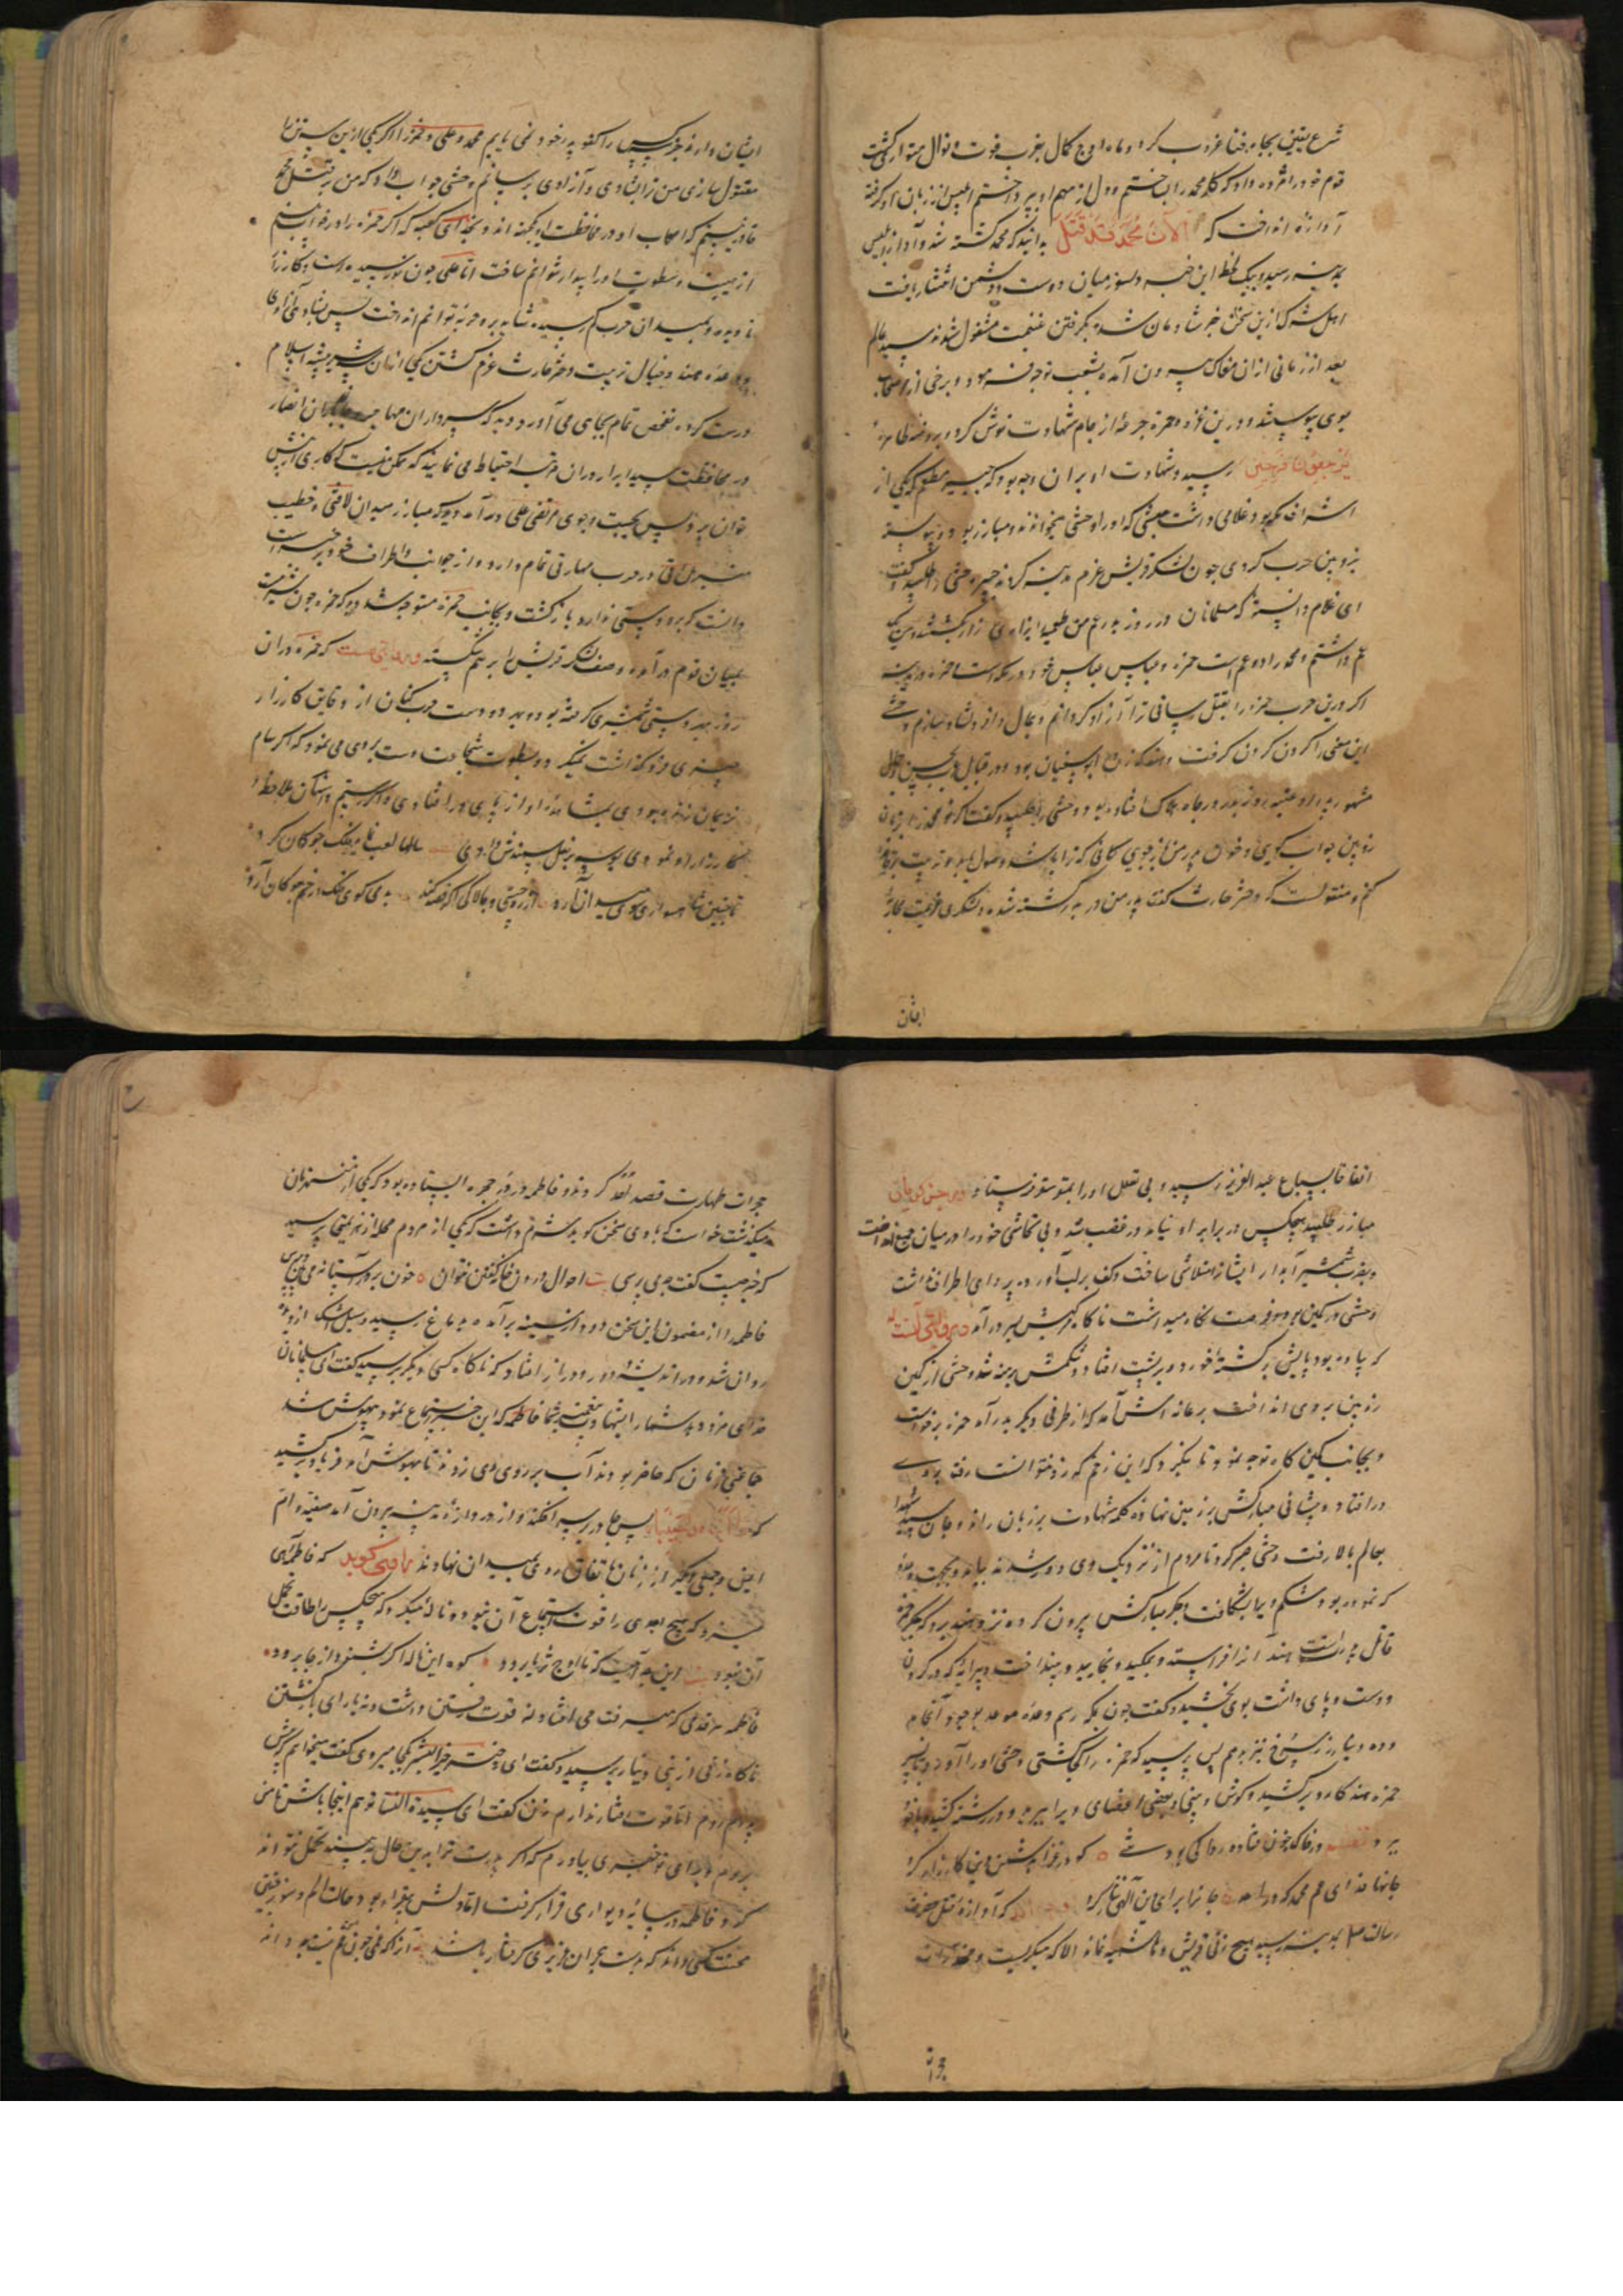 شرع یقین بچاه فنا غروب کرد و ماه اوج کمال بغرب فوت و نوال متواری کشت
قوم خود را مژده داد که کار محمد را بساختم و دل از مهم او بپرداختم ابلیس از زبان او کرفته
آوازه انداخت که الا ان محمدا قد قتل بدانید که محمد کشته شد و آواز ابلیس
بمدینه رسید و بیک لحظه این خبر دلسوز میان دوست و دشمن انتشار یافت
اهل شرک ازین سخن خبر شادمان شده بکرفتن غنیمت مشغول شدند سید عالم
بعد از زمانی ازان مغاک بیرون آمده بشعب توجه فرمود و برخی از اصحاب
بوی پیوستند و درین غزوه حمزه جرعهٔ از جام شهادت نوش کرد و بروضه
فرحین رسید و شهادت او بران وجه بود که جبیر مطعم که یکی از
اشراف مکه بود غلامی داشت حبشی که او را وحشی میخواندند و مبارز بود و پیوسته
بزوبین حرب کردی چون لشکر قریش عزم مدینه کردند جبیر وحشی را طلبید و کفت
ای غلام دانسته که مسلمانان در روز بدر عم من طعیمه را بزاری زار بکشتند و من یک
عم داشتم و محمد را دو عم است حمزه و عباس عباس خود در مکه است حمزه در مدینه
اکر درین حرب حمزه را بقتل رسانی ترا آزاد کردانم و بمال وافر دلشاد سازم وحشی
این معنی را کردن کرفت و هند که زن ابو سفیان بود و در قبایل عرب بحسن و جمال
مشهور پدر او عتبه روز بدر در چاه هلاک افتاده بود وحشی را طلبید و کفت اکر تو محمد را
زوبین جواب کویی و خون پدر من باز جویی کاری کنم که ترا
کنم و منقولست که دختر حارث کفت پدر من در بدر کشته شده و لشکری عزیمت
ایشان
ایشان دارند هیچکس را کفو پدر خود نمی یابیم محمد و علی و حمزه را اکر یکی ازین سه تن را
مقتول سازی من ترا شادی و آزادی برسانم وحشی جواب داد که من بر قتل محمد
قادر نیستم که اصحاب او در محافظت او یکجهته اند و بخدای کعبه که اکر حمزه را در خواب بینم
از هیبت و سطوت او را بیدار نتوانم ساخت اما علی چون نورسیده است و کارزار
نادیده و بمیدان حرب کم رسیده شاید برو حربه توانم انداخت پس بنابر آزادی
و وعدهٔ هند و خیال تربیت دختر حارث عزم کشتن یکی ازان سه شیر بیشه اسلام
درست کرده تفحص تمام بجای می آورد دید که سرداران مهاجر و انصار
در محافظت سید ابرار دران مرتبه احتیاط می نمایند که ممکن نیست که کاری از پیش
توان برد پس بجست و جوی مرتضی علی درآمد دید که مبارز میدان لافتی و خطیب
منبر سلونی در حرب مهارتی تمام دارد و از جوانب و اطراف خود بر خبر است
دانست که برو دستی ندارد بازکشت و بجانب حمزه متوجه شد دید که حمزه چون شیر مست
بمیان قوم درآمده و صف لشکر قریش را برهم شکسته و مرویست که حمزه دران
روز بهر دستی شمشیری کرفته بود و بهر دو دست حرب کنان از دقایق کارزار
چیزی فرو نکذاشت میکرد و بسطوت شجاعت دست بردی می نمود که اکر سام
نریمان زنده بودی بمشاهدهٔ او از پای در افتادی و اکر رستم داستان ملاحظهٔ
کارزار او نمودی بوسه بر نعل سمندش دادی سالها لعب فلک چوکان کرد
تا چنین شاهسواری سوی میدان آرد از روی چستی و چالاکی اکر قصد کند بدمی کوی فلک در خم چوکان آرد
اتفاقا بسباع عبد العزی رسید و بی تعلل او را بمتوستو فرستاد و هر چند که
مبارز طلبید هیچکس در برابر او نیامد در غضب شد و بی تحاشی خود را در میان جمع انداخت
و بضرب شمشیر آبدار ایشانرا متلاشی ساخت و کف بر لب آورده پروای اطراف نداشت
وحشی در کمین بود و فرصت نکاه میداشت تا کار بهرش بسر درآمد و روایتی آنست
که پیاده بود پایش بر کشتهٔ خورد و بر پشت افتاد و شکمش برهنه شد وحشی از کمین
زوبین بر وی انداخت بر عانه اش آمد که از طرفی دیکر بدر آمد حمزه برخاست
و بجانب کمین کاه توجه نمود تا بنکرد که این زخم که زد نتوانست رفت بر وی
درافتاد و پیشانی مبارکش بر زمین نهاده کلمه شهادت بر زبان راند و جان سید شهدا
بعالم بالا رفت وحشی صبر کرد تا مردم از نزدیک وی دور شدند بیامد و بجهت وعدهٔ
که نموده بود شکم ویرا بشکافت و جکر مبارکش بیرون کرده نزد هند برد که جکر حمزه
قاتل پدر تست هند آنرا فراستد و بمکید و بخایید و بینداخت و پیرایه که در کردن
و دست و پای داشت بوی بخشید و کفت چون بمکه رسم وعدهٔ موعود بوجود انجام
و ده دینار زر سرخ نیز بدهم پس پرسید که حمزه را کجا کشتی وحشی او را آورد و بر سر
حمزه هند کارد برکشید و کوش و بینی و بعضی اعضای ویرا ببرید و در رشته کشید و با خود
برد در خاک و خون فتاده رخ پاک بود شی کو در غزا بشمن دین کارزار کرد
جانها فدای عم محمد که در احد جانرا برای دین الهی نثار کرد که آوازهٔ قتل حضرت
رسالت بمدینه رسید هیچ زنی از قریش و هاشمیه نماند الا که میکریست و
حجرات
حجرات طهارت قصد تفقد کردند و فاطمه در در حجره ایستاده بود که یکی از منهزمان
میکذشت خواست که با وی سخن کوید شرم داشت که یکی از مردم محله از هزیمتی پرسید
که خبر چیست کفت چه می پرسی بیت احوال درون خانه کفتن نتوان خون بر در آستانه می بین و مپرس
فاطمه را از مضمون این سخن دود از سینه برآمده بدماغ رسید و سیل اشک از دیده
روان شد و در اندیشهٔ دور و دراز افتاد که ناکاه کسی دیکر برسید کفت ای مسلمانان
خدای مزد دهد شما را بمصیبت پیغمبر شما فاطمه که این خبر استماع نمود بیهوش شد
جماعتی زنان که حاضر بودند آب بر روی وی زدند تا بهوش آمد فریاد برکشید
که پس چادر بر سر افکند و از دروازهٔ مدینه بیرون آمد صفیه و ام
ایمن و جمعی دیکر از زنان باتفاق روی بمیدان نهادند راوی کوید که فاطمه آهی
میزد که هیچ احدی را قوت استماع آن نبود و ناله میکرد که هیچکس را طاقت تحمل
آن نبود این چه آهست که تا اوج ثریا برود کوه این ناله اکر بشنود از جا برود
فاطمه هر قدمی که میرفت می افتاد نه قوت رفتن داشت و نه یارای بازکشتن
ناکاه زنی از بنی دینار برسید و کفت ای دختر خیر البشر بکجا میروی کفت میخواهم که پیش
پدرم روم اما قوت رفتار ندارم زن کفت ای سیدة النسا تو هم اینجا باش تا من
بروم و برای تو خبری بیاورم که اکر پدرت ترا بدین حال به بیند تحمل نتواند
کرد فاطمه در سایهٔ دیواری قرار کرفت اما دلش بیقرار بود و حالت الم و سوز فقی
محنت کسی داند که بدست هجران عزیزی کرفتار باشد آنرا که غمی چون غم من نیست چه داند